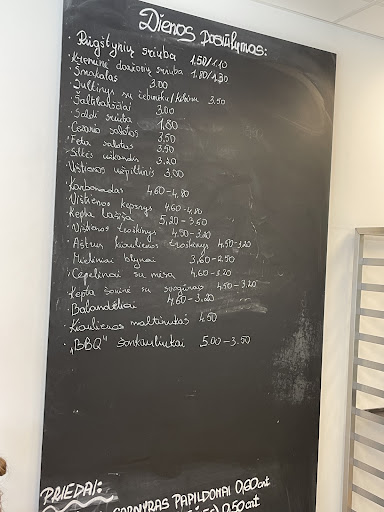 Dienos pasiūlymas:
Rūgštynių sriuba 1,50/1,10
Kreminė daržovių sriuba 1.80/1,30
Šmakalas 3.00
Šaltibarščiai 3.00
Saldi sriuba 1,80
Cezario salotos 3,50
Feta salotos 3.50
Silkės užkandis 3.20
Vištienos užpiltinis 3,00
Karbonadas 4,60-4,80
Vištienos kepsnys 4.60-4.80
Kepta lašiša 5,20-3.60
Vištienos troškinys 4.50-3.20
Aštrus kiaulienos troškinys 4.50-3,20
Mieliniai blynai 3,60-2.50
Cepelinai su mėsa 4,60-3.20
Kepta šoninė su svogūnais 4.50-3.20
Balandėliai 4,60-3.20
Kiaulienos maltinukas 4,50
"BBQ" šonkauliukai 5,00-3.50
PRIEDAI:
GARNYRAS PAPILDOMAI 0,90cnt
0,50cnt